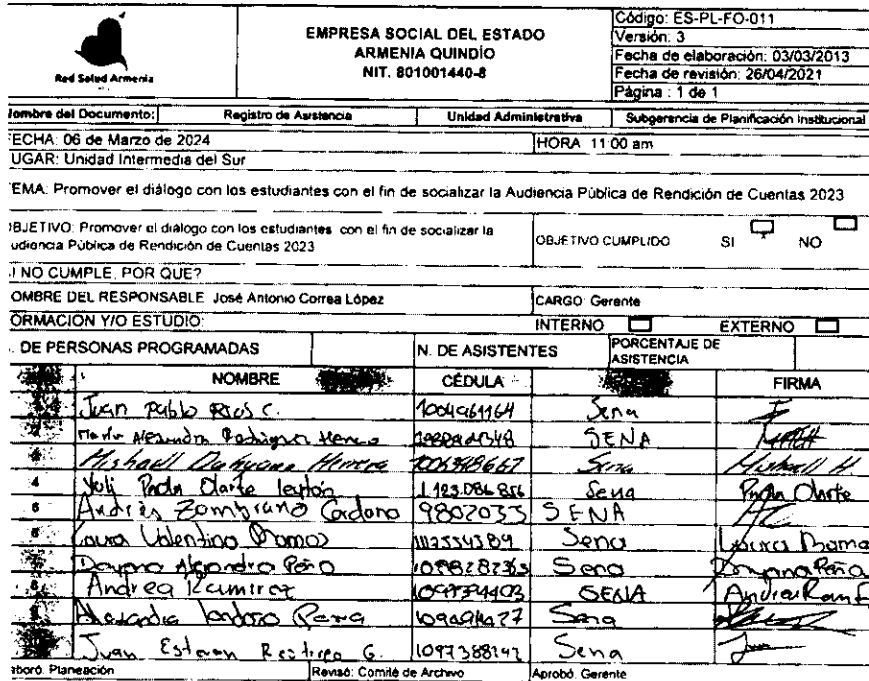 Red Salud Armenia
EMPRESA SOCIAL DEL ESTADO
ARMENIA QUINDÍO
NIT. 801001440-8
Código: ES-PL-FO-011
Versión: 3
Fecha de elaboración: 03/03/2013
Fecha de revisión: 26/04/2021
Página : 1 de 1
ombre del Documento: Registro de Asistencia Unidad Administrativa Subgerencia de Planificación Institucional
ECHA: 06 de Marzo de 2024 HORA 11:00 am
UGAR: Unidad Intermedia del Sur
EMA: Promover el diálogo con los estudiantes con el fin de socializar la Audiencia Pública de Rendición de Cuentas 2023
BJETIVO: Promover el diálogo con los estudiantes con el fin de socializar la
udiencia Pública de Rendición de Cuentas 2023
OBJETIVO CUMPLIDO SI NO
I NO CUMPLE, POR QUE?
OMBRE DEL RESPONSABLE José Antonio Correa López CARGO: Gerente
ORMACION Y/O ESTUDIO: INTERNO EXTERNO
. DE PERSONAS PROGRAMADAS N. DE ASISTENTES PORCENTAJE DE ASISTENCIA
NOMBRE CÉDULA FIRMA
Juan Pablo Rios C. 1004961164 Sena
Maria Alejandra Rodriguez SENA
Mishaell Dahyana Herrera Sena Mishaell H
4 Yuli Paola Olarte 1.123.086.856 Sena Paola Olarte
5 Andrés Zambrano Cardona 9802033 SENA
6 Laura Valentina Ramos Sena Laura Ramo
Dayana Alejandra Peña Sena Dayana Peña
Andrea Ramirez SENA Andrea Ram
Alexandra Sena
Juan Estevan Restrepo G. Sena
aboró. Planeación Revisó: Comité de Archivo Aprobó. Gerente